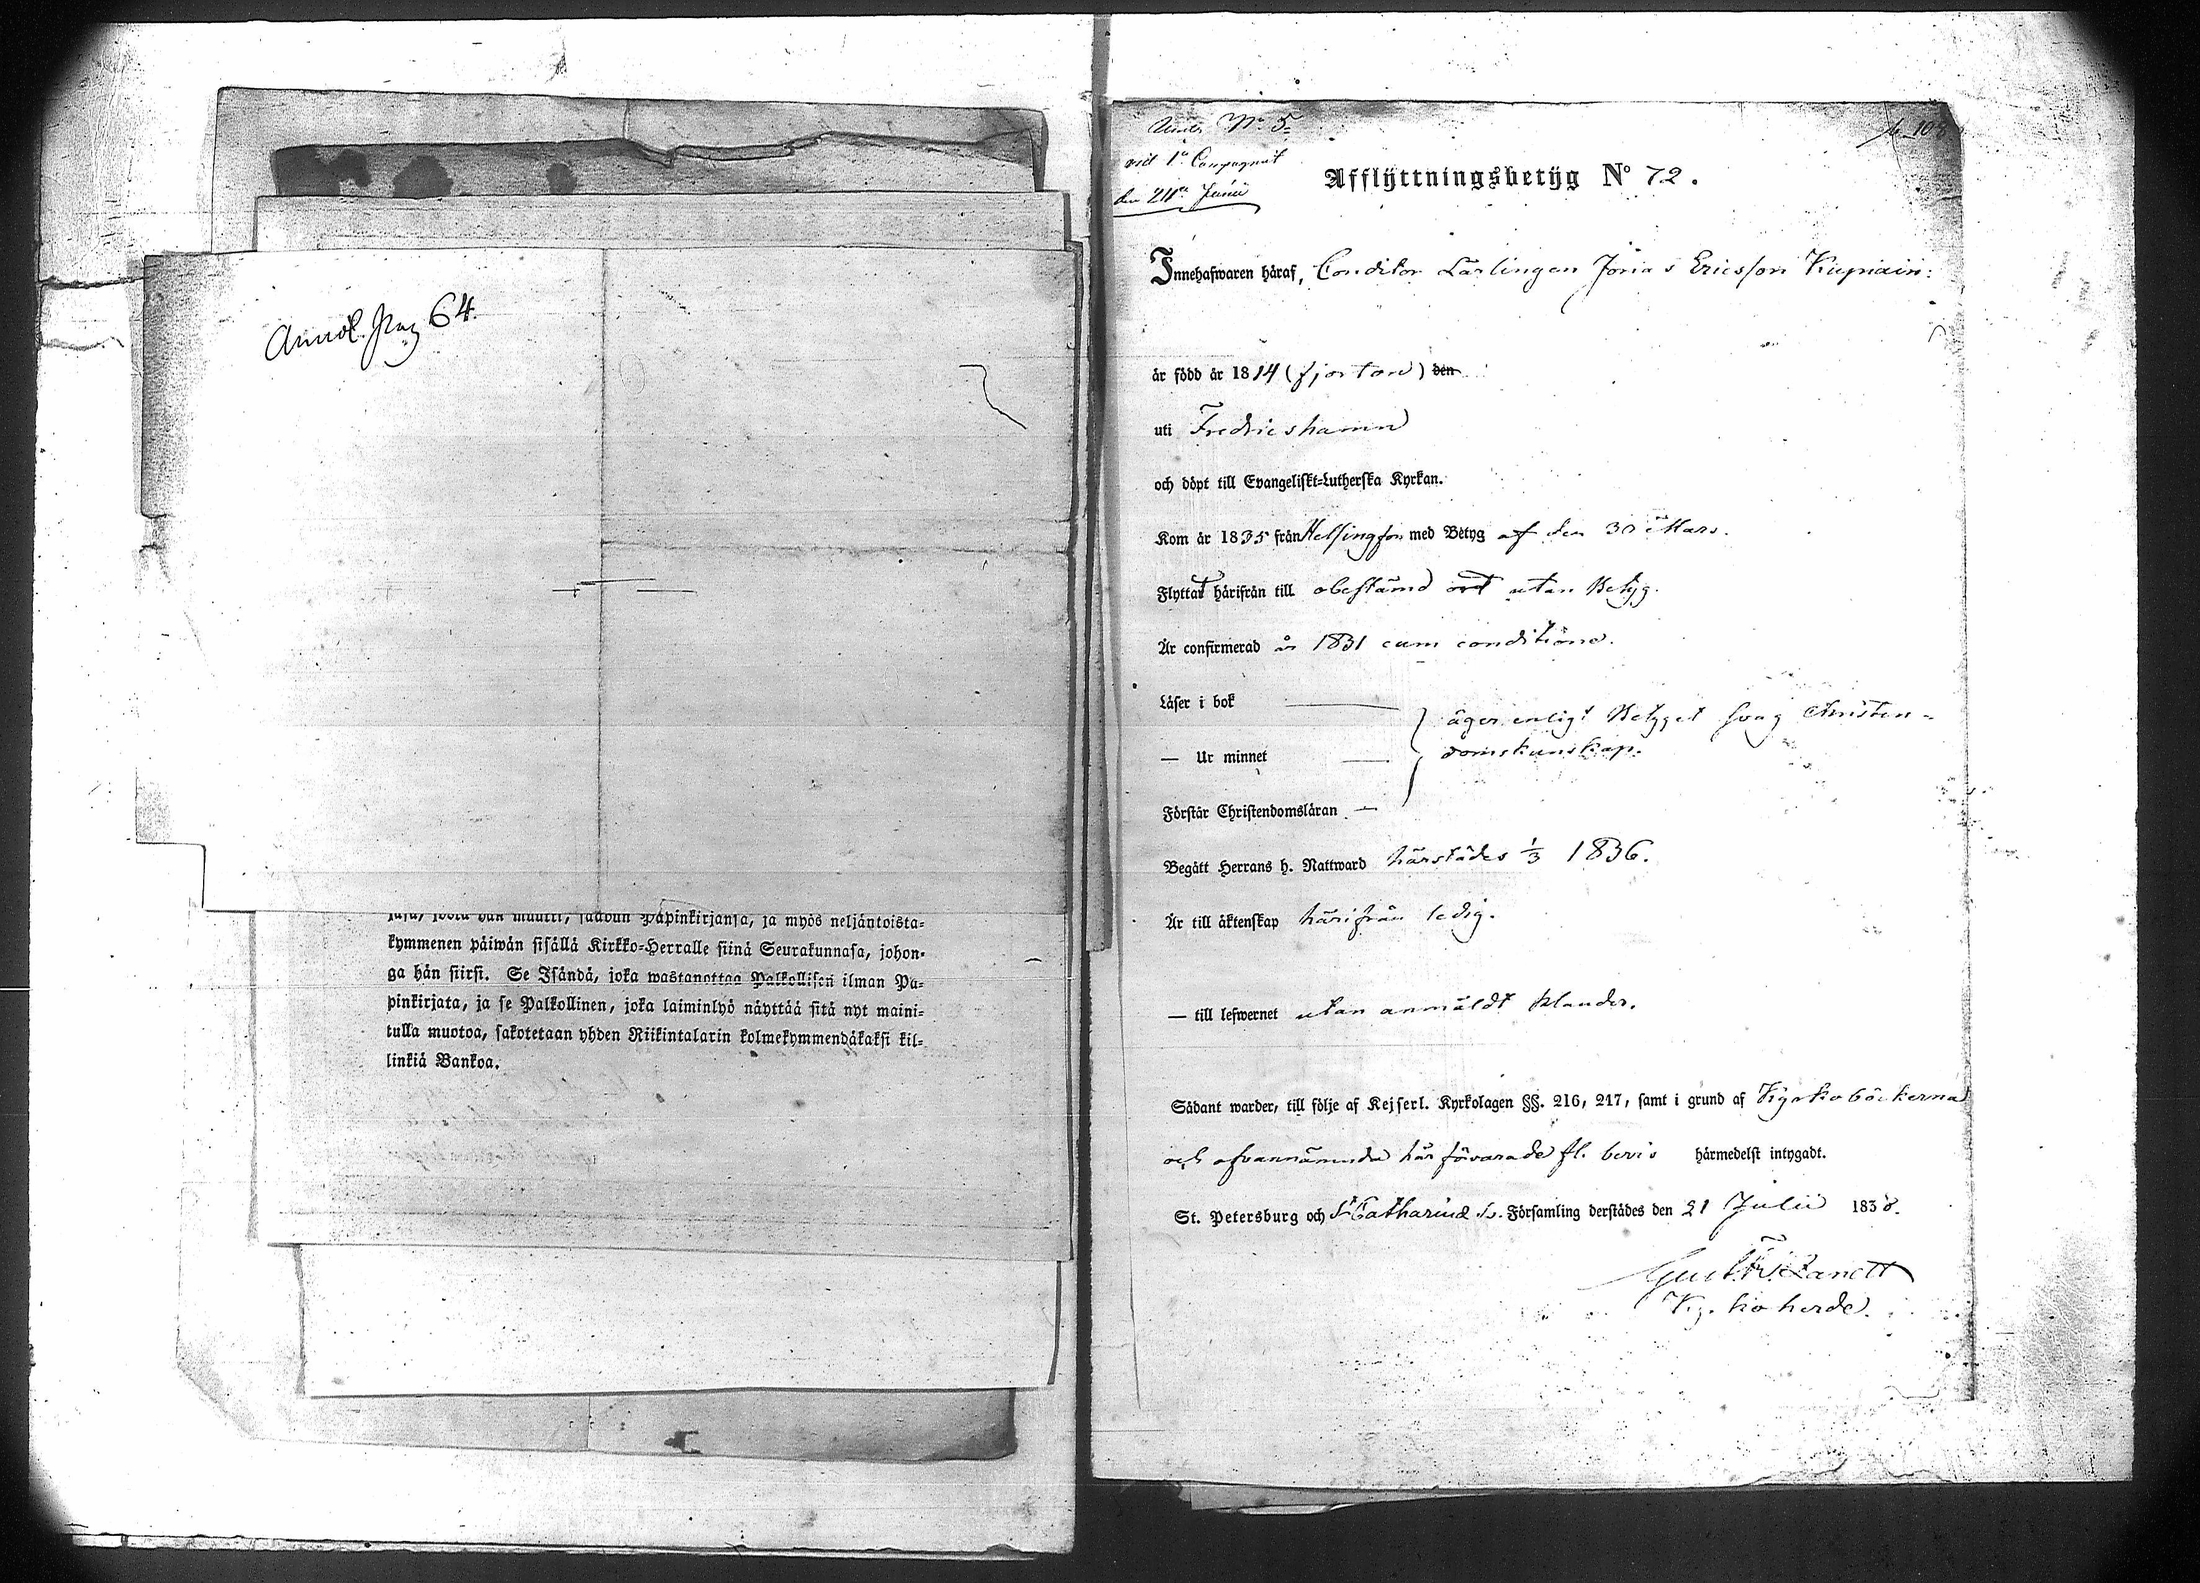 Anmäl. pag 64.
kymmenen päiwän sisällä Kirkko-Herralle siinä Seurakunnasa, johon-
ga hän siirsi. Se Isändä, joka wastanottaa Palkollisen ilman Pa-
pinkirjata, ja se Palkollinen, joka laiminlyö näyttää sitä nyt maini-
tulla muotoa, sakotetaan yhden Riikintalarin kolmekymmendäkaksi kil-
linkiä Bankoa.
N° 5
vid 1a Compagniet
den 24de Junii
Afflyttningsbetyg N° 72.
Innehafwaren häraf, Conditor Lärlingen Jonas Ericsson Kupiain:
är född år 1814 (fjorton) den
uti Fredricshamn
och döpt till Evangeliskt-Lutherska Kyrkan.
Kom år 1835 från Helsingfors med Betyg af den 30 Mars.
Flyttat härifrån till obestämd ort utan Betyg.
Är confirmerad år 1831 cum conditione.
Läser i bok
äger enligt Betyget svag Christen-
— Ur minnet
domskunskap.
Förstår Christendomsläran —
Begått Herrans h. Nattward härstädes 1/3 1836.
Är till äktenskap härifrån ledig.
— till lefwernet utan anmäldt klander.
Sådant warder, till följe af Kejserl. Kyrkolagen §§. 216, 217, samt i grund af Kyrkoböckerna
och ofvannämnda här förvarade fl. bevis härmedelst intygadt.
St. Petersburg och St Catharinæ Sv. Församling derstädes den 21 Julii 1838.
Kyrkoherde.